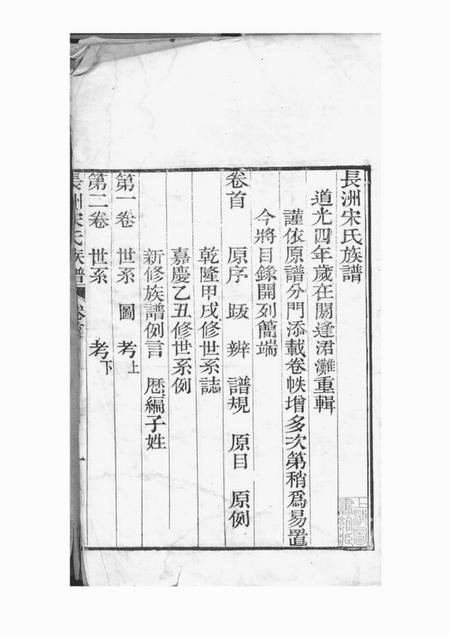 長洲宋氏族譜
道光四年歲在閼逢涒灘重輯
謹依原譜分門添載卷帙增多次第稍爲易置
今將目錄開列簡端
卷首　原序　跋　辨　譜規　原目　原例
乾隆甲戌修世系誌
嘉慶乙丑修世系例
新修族譜例言　歷編子姓
第一卷　世系　圖　考上
第二卷　世系　考下
長洲宋氏族譜　卷首